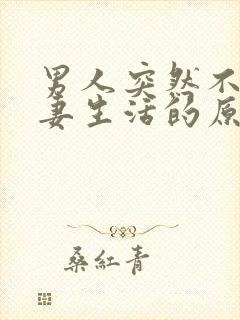 男人突然不
妻生活的原
桑红青